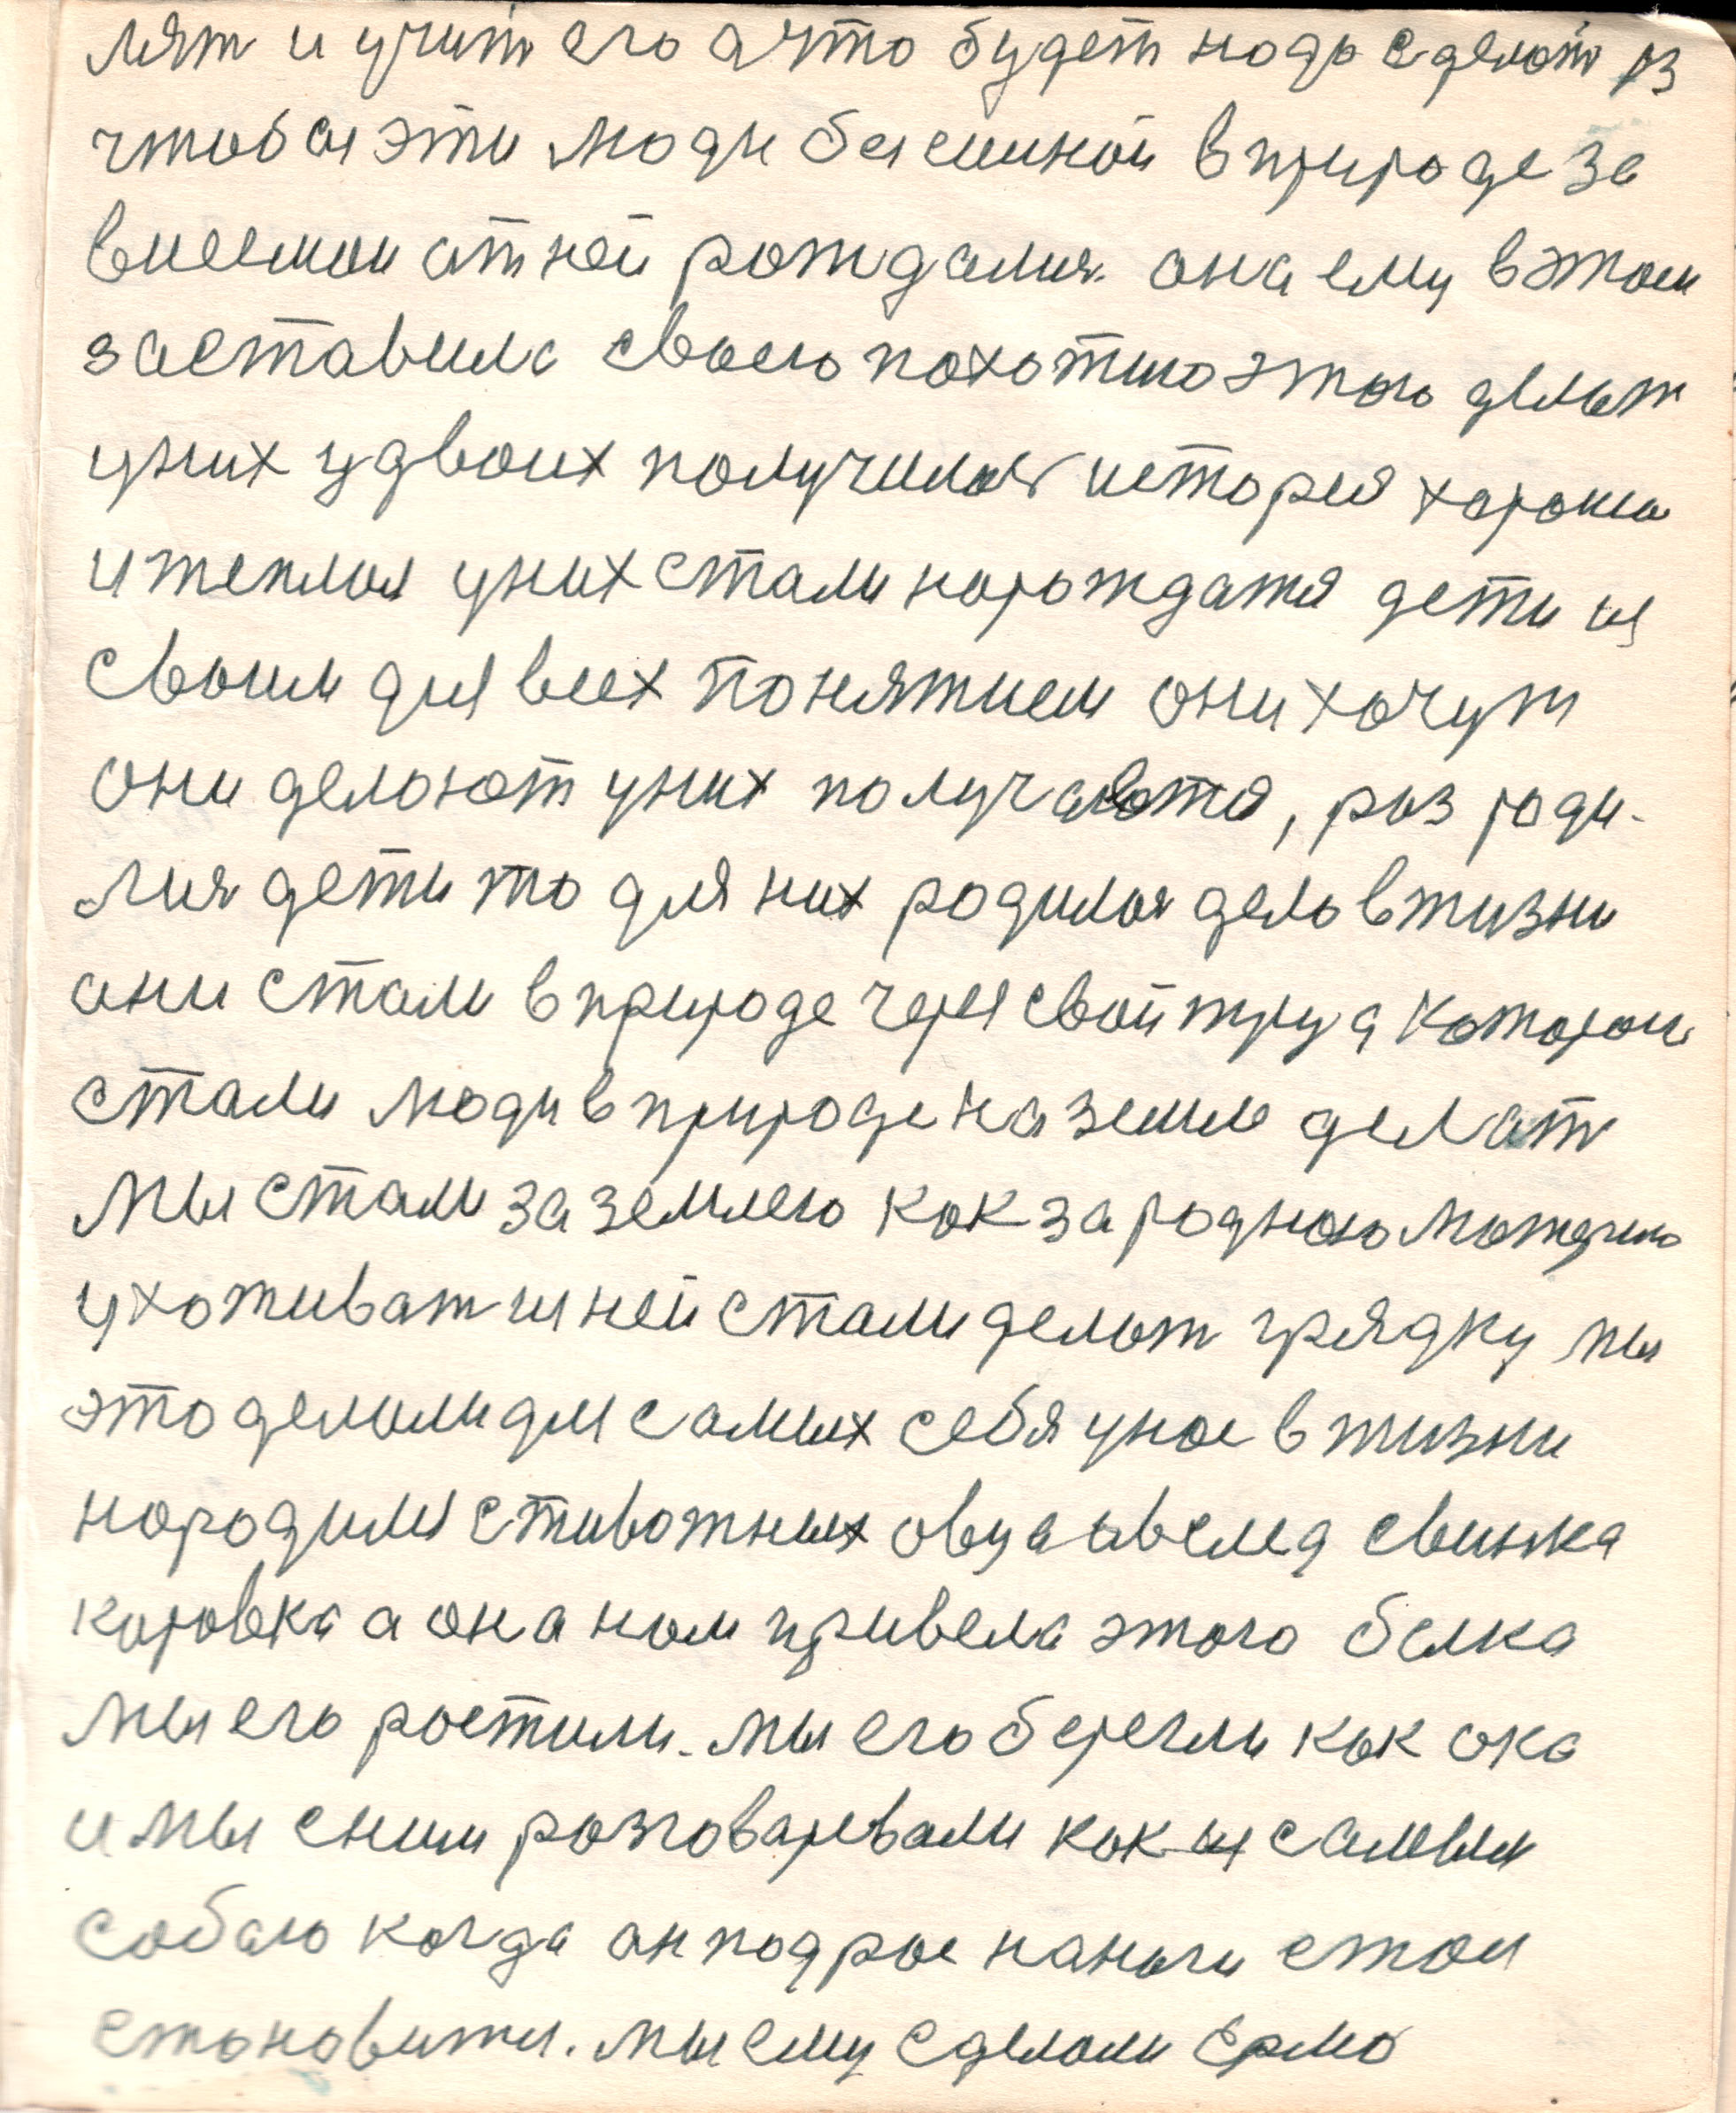 лят и учит его а что будет надо сделат
чтобы эти люди бы силной в природе за
от ней рождалия. она ему в этом
заставила своею похотию этого делат
у них у двоих получилося история хароша
и теплая у них стали нарождатя дети
своим для всех понятием они хочут
они делоют у них получаетя, раз роди-
лия дети то для них родилоя дело в жизни
они стали в природе через свой труд котором
стали люди в природе на земле делат
мы стали за землею как за родною матерью
ухоживат и ней стали делат грядку мы
это делали для самих себя у нас в жизни
народилися животных овца вслед свинка
коровка а она нам привела этого белка
мы его ростили. мы его берегли как ока
и мы сним розговаревали как и самым
собаю когда он подрос на ноги стал
становитя. мы ему сделали ермо